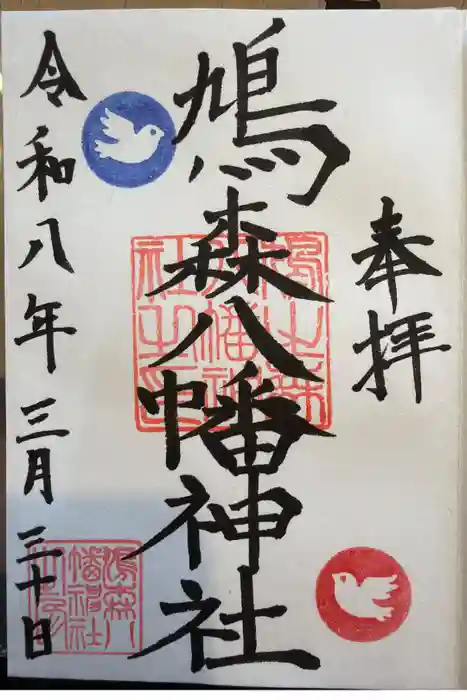 奉拝
鳩森八幡神社
令和八年三月三十日